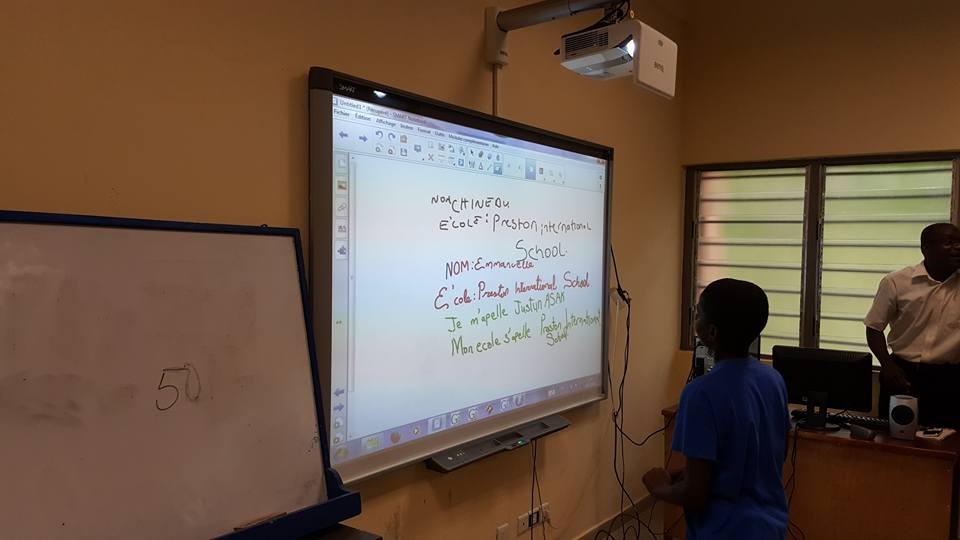 50
SMART
Untitled1 * (Récupéré) - SMART Notebook
Fichier Edition Affichage Insérer Format Outils Modules complémentaires Aide
NOM CHINEDU
E'COLE: Preston international
SCHOOL.
NOM: Emmanuella
E'cole: Preston International School
Je m'apelle Justyn ASAK
Mon ecole s'apelle Preston International
School
BenQ